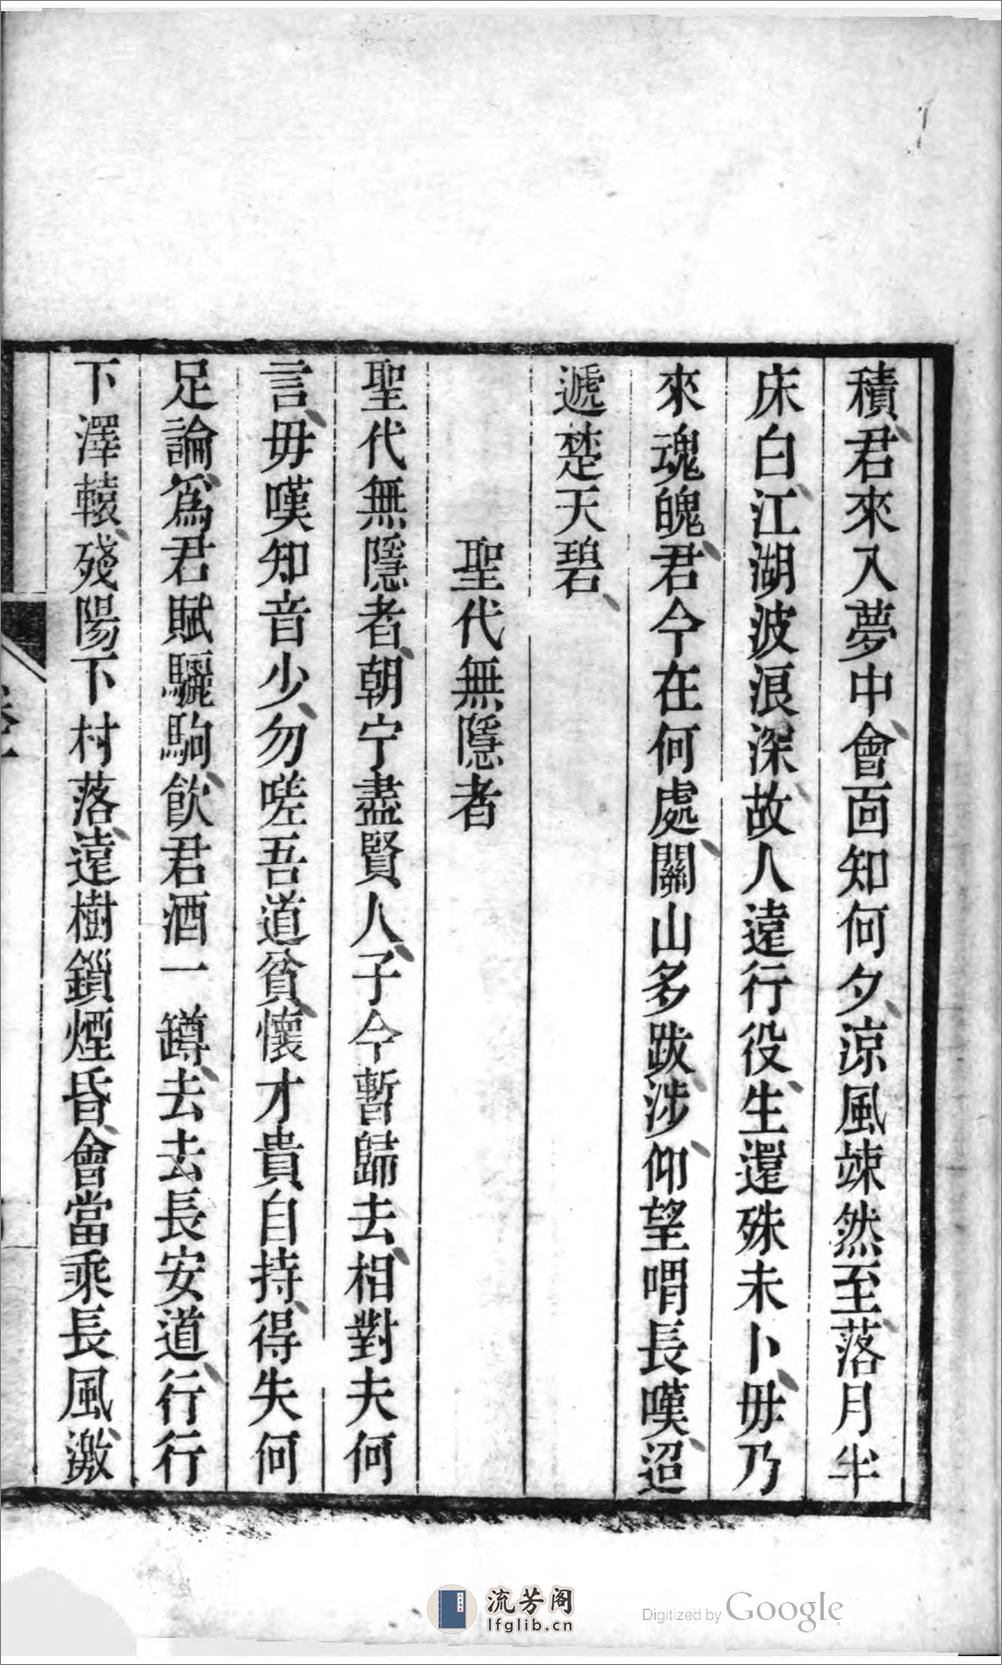 積君來入夢中會面知何夕涼風竦然至落月半
床白江湖波浪深故人遠行役生還殊未卜毋乃
來魂魄君今在何處關山多跋涉仰望喟長嘆迢
遞楚天碧
聖代無隱者
聖代無隱者朝宁盡賢人子今暫歸去相對夫何
言毋嘆知音少勿嗟吾道貧懷才貴自持得失何
足論爲君賦驪駒飲君酒一罇去去長安道行行
下澤轅殘陽下村落遠樹鎖煙昏會當乘長風激
流芳阁
lfglib.cn
Digitized by Google